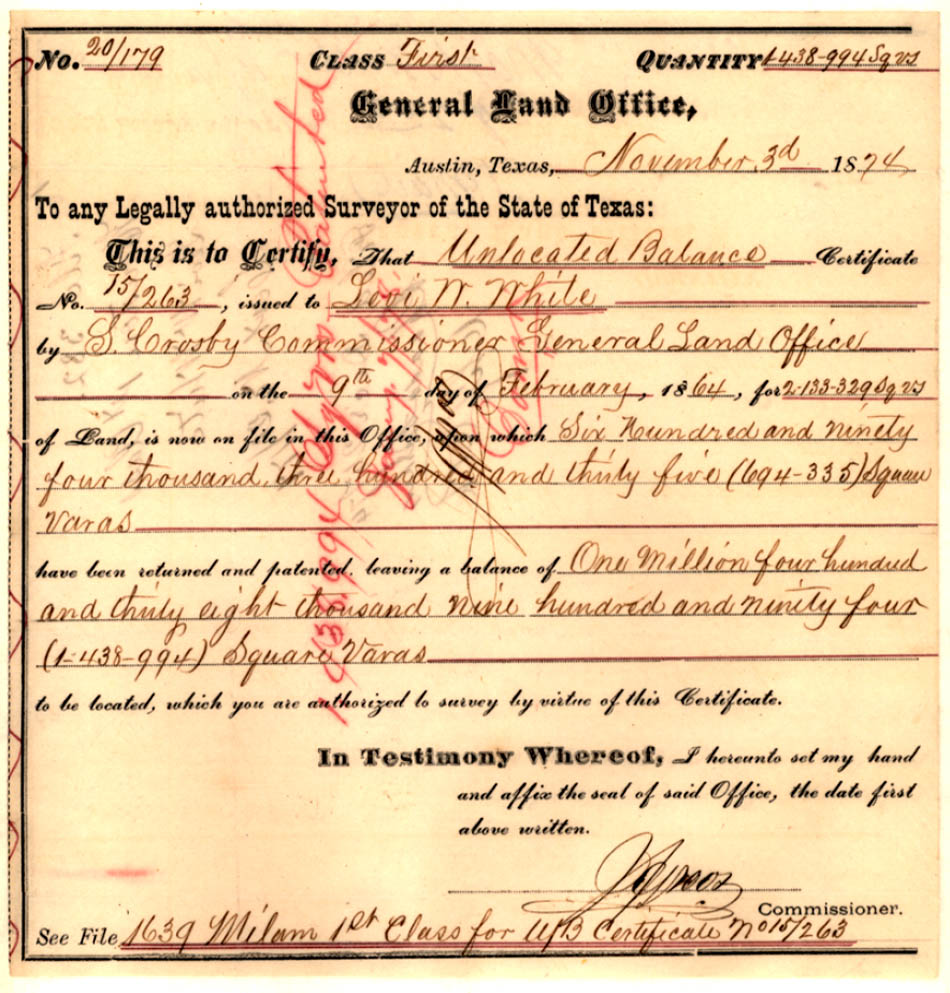 No. 20/179 CLASS First QUANTITY 1-438-994 Sq vs
General Land Office,
Austin, Texas, November 3d 1874
To any Legally authorized Surveyor of the State of Texas:
This is to Certify, That Unlocated Balance Certificate
No. 15/263, issued to Levi W. White
by S. Crosby Commissioner General Land Office
on the 9th day of February, 1864, for 2-133-329 Sq vs
of Land, is now on file in this Office, upon which Six Hundred and ninety
four thousand three hundred and thirty five (694-335) Square
Varas
have been returned and patented, leaving a balance of One Million four hundred
and thirty eight thousand nine hundred and ninety four
(1-438-994) Square Varas
to be located, which you are authorized to survey by virtue of this Certificate.
In Testimony Whereof, I hereunto set my hand
and affix the seal of said Office, the date first
above written.
Commissioner.
See File 1639 Milam 1st Class for U/B Certificate No 15/263